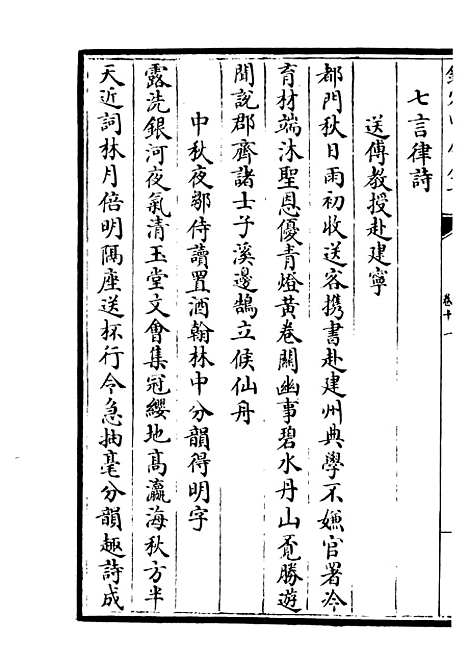 七言律詩
送傅教授赴建寧
都門秋日雨初收送客携書赴建州典學不嫌官署冷
育材端沐聖恩優青燈黃卷關幽事碧水丹山覔勝遊
聞說郡齋諸士子溪邊鵠立候仙舟
中秋夜鄒侍讀置酒翰林中分韻得明字
露洗銀河夜氣清玉堂文會集冠纓地高瀛海秋方半
天近詞林月倍明隔座送杯行令急抽毫分韻趣詩成
卷十一